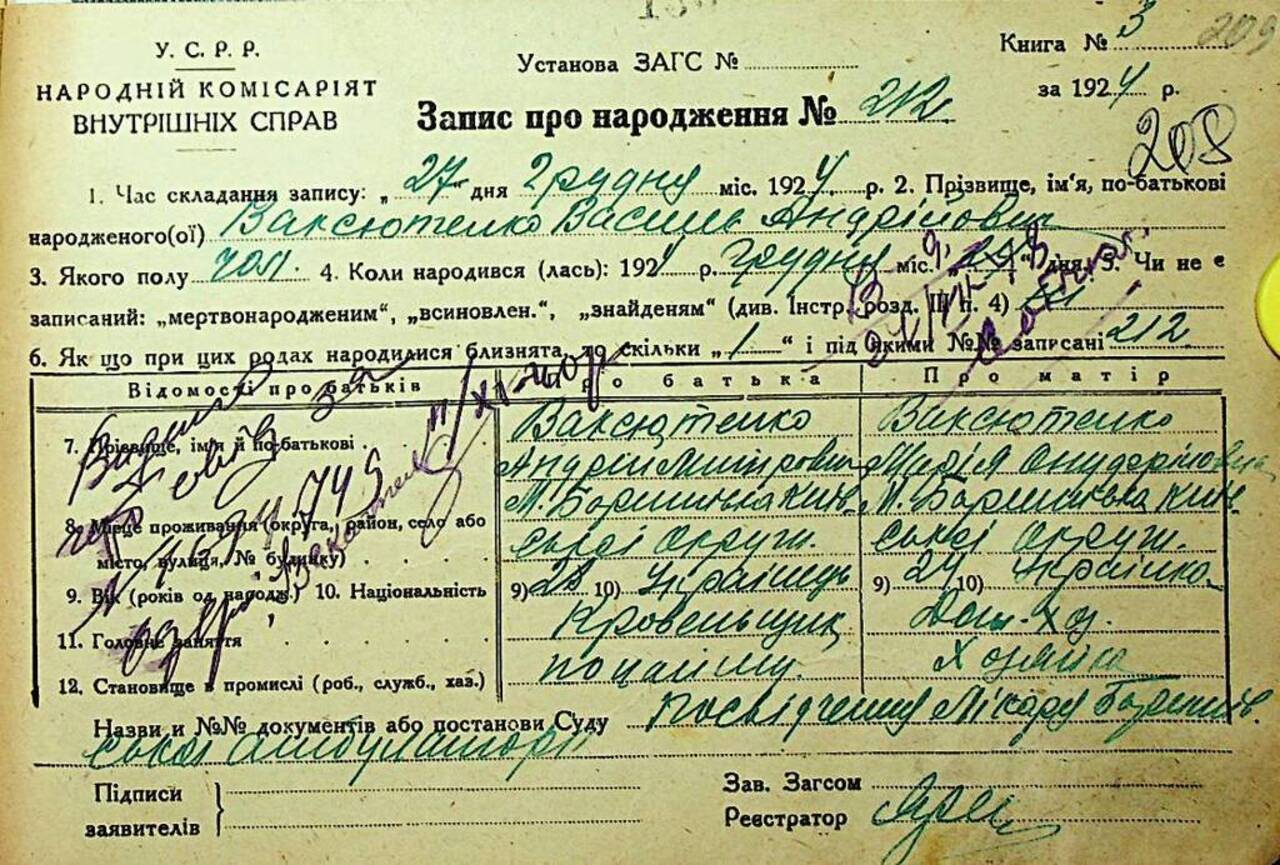 209
У. С. Р. Р.
НАРОДНІЙ КОМІСАРІЯТ
ВНУТРІШНІХ СПРАВ
Установа ЗАГС №
Книга № 3
за 1924 р.
Запис про народження № 212
208
1. Час складання запису: „27“ дня Грудня міс. 1924 р. 2. Прізвище, ім'я, по-батькові
народженого(ої) Ваксютенко Василь Андрійович
3. Якого полу чол. 4. Коли народився (лась): 1924 р. Грудня міс. дня 5. Чи не є
записаний: „мертвонародженим“, „всиновлен.“, „знайденям“ (див. Інстр. розд. III п. 4)
6. Як що при цих родах народилися близнята, то скільки „1“ і під якими №№ записані 212
Відомості про батьків Про батька Про матір
7. Прізвище, імя й по-батькові Ваксютенко Ваксютенко
Андрій Митрович Марія Онуфріївна
8. Місце проживання (округа, район, село або М. Баришівка Київ М. Баришівка Київ
місто, вулиця, № будинку) ської округи. ської округи.
9. Вік (років од народж.) 10. Національність 9) 28 10) Українець 9) 24 10) Українка
11. Головне заняття Кровельщик Дом. Хоз.
12. Становище в промислі (роб., служб., хаз.) по найму. Хозяйка
Назви и №№ документів або постанови Суду Посвідчення Лікаря Баришів
ської амбулаторії
Підписи
заявителів
Зав. Загсом
Реєстратор